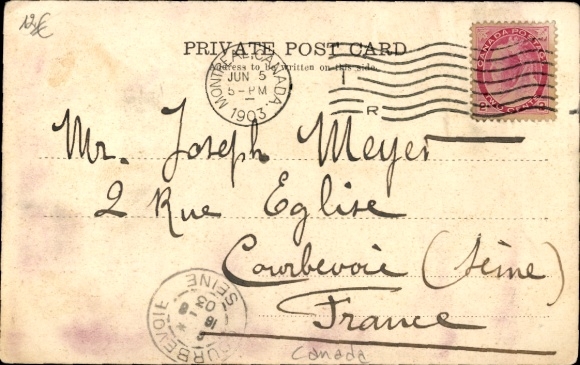 PRIVATE POST CARD
Address to be written on this side.
MONTREAL CANADA
JUN 5
5-PM
1903
R
CANADA POSTAGE
TWO CENTS
Mr. Joseph Meyer
2 Rue Eglise
Courbevoie (Seine)
France
COURBEVOIE
SEINE
03
Canada